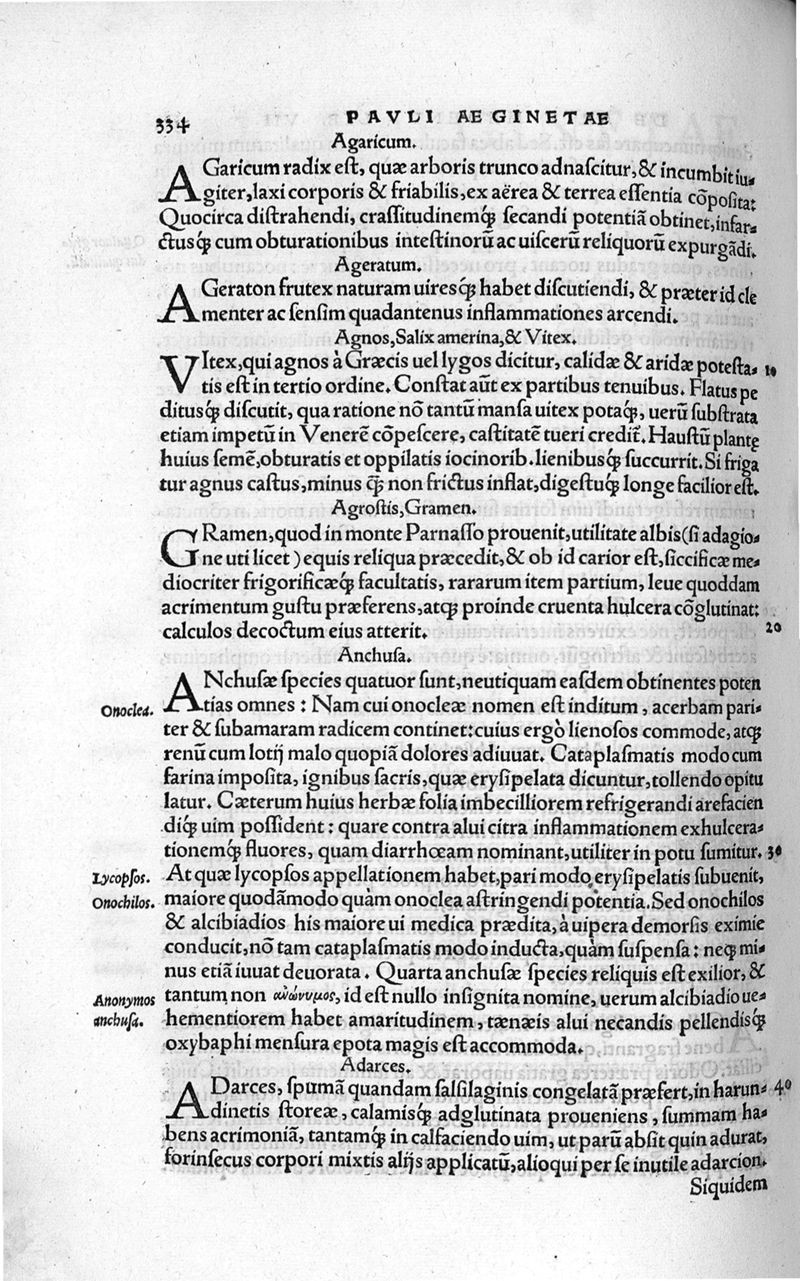 334 PAVLI AEGINETAE
Agaricum.
AGaricum radix eſt, quæ arboris trunco adnaſcitur, & incumbit iu⸗
giter, laxi corporis & friabilis, ex aërea & terrea eſſentia cõpoſita:
Quocirca diſtrahendi, craſſitudinemq́; ſecandi potentiã obtinet, infar⸗
ctusq́; cum obturationibus inteſtinorũ ac uiſcerũ reliquorũ expurgãdi.
Ageratum.
AGeraton frutex naturam uiresq́; habet diſcutiendi, & præter id cle
menter ac ſenſim quadantenus inflammationes arcendi.
Agnos, Salix amerina, & Vitex.
VItex, qui agnos à Græcis uel lygos dicitur, calidæ & aridæ poteſta⸗ 10
tis eſt in tertio ordine. Conſtat aũt ex partibus tenuibus. Flatus pe
ditusq́; diſcutit, qua ratione nõ tantũ manſa uitex potaq́;, uerũ ſubſtrata
etiam impetũ in Venerẽ cõpeſcere, caſtitatẽ tueri credit᷑. Hauſtũ plantę
huius ſemẽ, obturatis et oppilatis iocinorib. lienibusq́; ſuccurrit. Si friga
tur agnus caſtus, minus q̃; non frictus inflat, digeſtuq́; longe facilior eſt.
Agroſtis, Gramen.
GRamen, quod in monte Parnaſſo prouenit, utilitate albis (ſi adagio⸗
ne uti licet) equis reliqua præcedit, & ob id carior eſt, ſiccificæ me⸗
diocriter frigorificæq́; facultatis, rararum item partium, leue quoddam
acrimentum guſtu præferens, atq; proinde cruenta hulcera cõglutinat:
calculos decoctum eius atterit. 20
Anchuſa.
ANchuſæ ſpecies quatuor ſunt, neutiquam eaſdem obtinentes poten
Onoclea. tias omnes: Nam cui onocleæ nomen eſt inditum, acerbam pari⸗
ter & ſubamaram radicem continet: cuius ergò lienoſos commode, atq;
renũ cum lotij malo quopiã dolores adiuuat. Cataplaſmatis modo cum
farina impoſita, ignibus ſacris, quæ eryſipelata dicuntur, tollendo opitu
latur. Cæterum huius herbæ folia imbecilliorem refrigerandi arefacien
diq́; uim poſſident: quare contra alui citra inflammationem exhulcera⸗
tionemq́; fluores, quam diarrhœam nominant, utiliter in potu ſumitur. 30
Lycopſos. At quæ lycopſos appellationem habet, pari modo eryſipelatis ſubuenit,
Onochilos. maiore quodãmodo quàm onoclea aſtringendi potentia. Sed onochilos
& alcibiadios his maiore ui medica prædita, à uipera demorſis eximie
conducit, nõ tam cataplaſmatis modo inducta, quàm ſuſpenſa: neq; mi⸗
nus etiã iuuat deuorata. Quarta anchuſæ ſpecies reliquis eſt exilior, &
Anonymos tantum non ἀνώνυμος, id eſt nullo inſignita nomine, uerum alcibiadio ue⸗
anchuſa. hementiorem habet amaritudinem, tænæis alui necandis pellendisq́;
oxybaphi menſura epota magis eſt accommoda.
Adarces.
ADarces, ſpumã quandam ſalſilaginis congelatã præfert, in harun⸗ 40
dinetis ſtoreæ, calamisq́; adglutinata proueniens, ſummam ha⸗
bens acrimoniã, tantamq́; in calfaciendo uim, ut parũ abſit quin adurat,
forinſecus corpori mixtis alijs applicatũ, alioqui per ſe inutile adarcion.
Siquidem